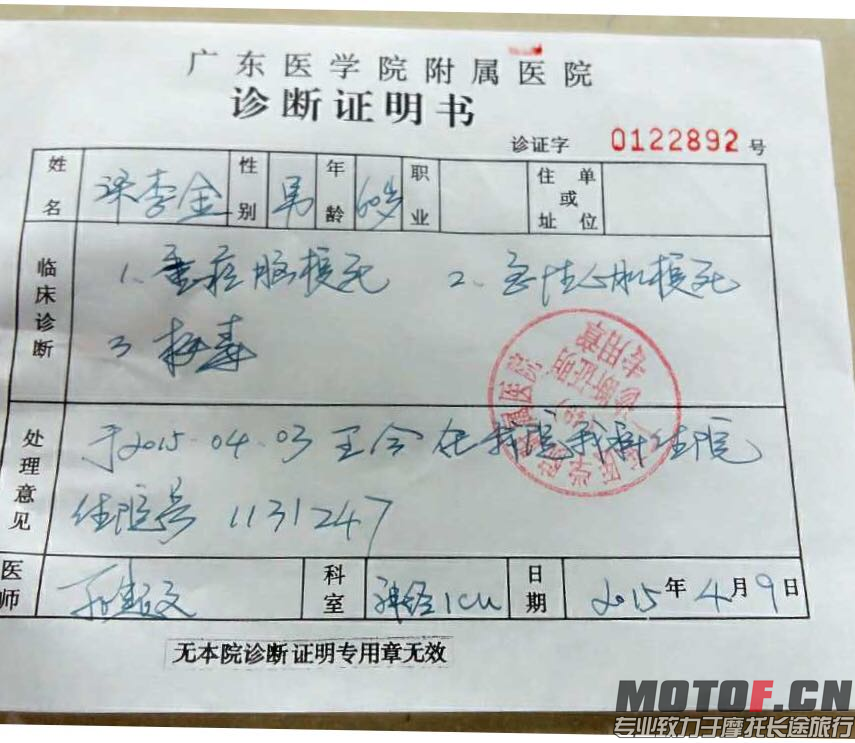 广东医学院附属医院
诊断证明书
诊证字 0122892 号
姓名 梁李金 性别 男 年龄 60岁 职业 住址或单位
临床诊断 1. 重症脑梗死 2. 急性心肌梗死
3 梅毒
处理意见 于2015.04.03至今在我院我科住院
住院号 1131247
医师 科室 神经ICU 日期 2015年4月9日
无本院诊断证明专用章无效
诊断证明
专用章
MOTOF.CN
专业致力于摩托长途旅行